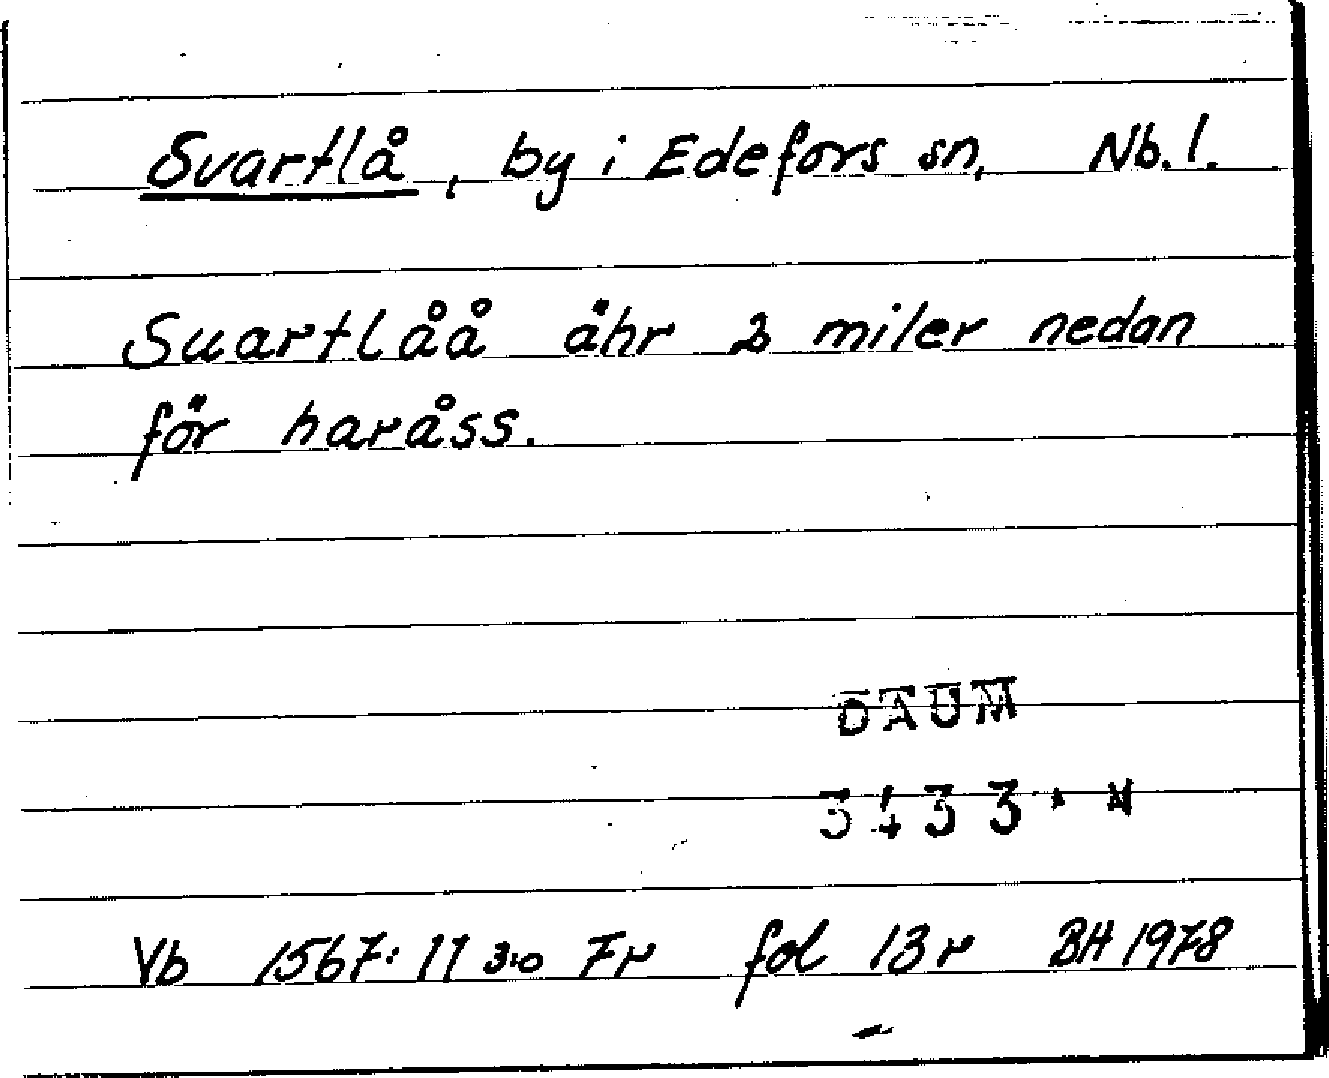 Svartlå, by i Edefors sn, Nb. l.
Suartlåå åhr 2 miler nedan
för haråss.
DAUM
3133. N
Vb 1567: 11 3:0 Fr fol 13 r BH 1978